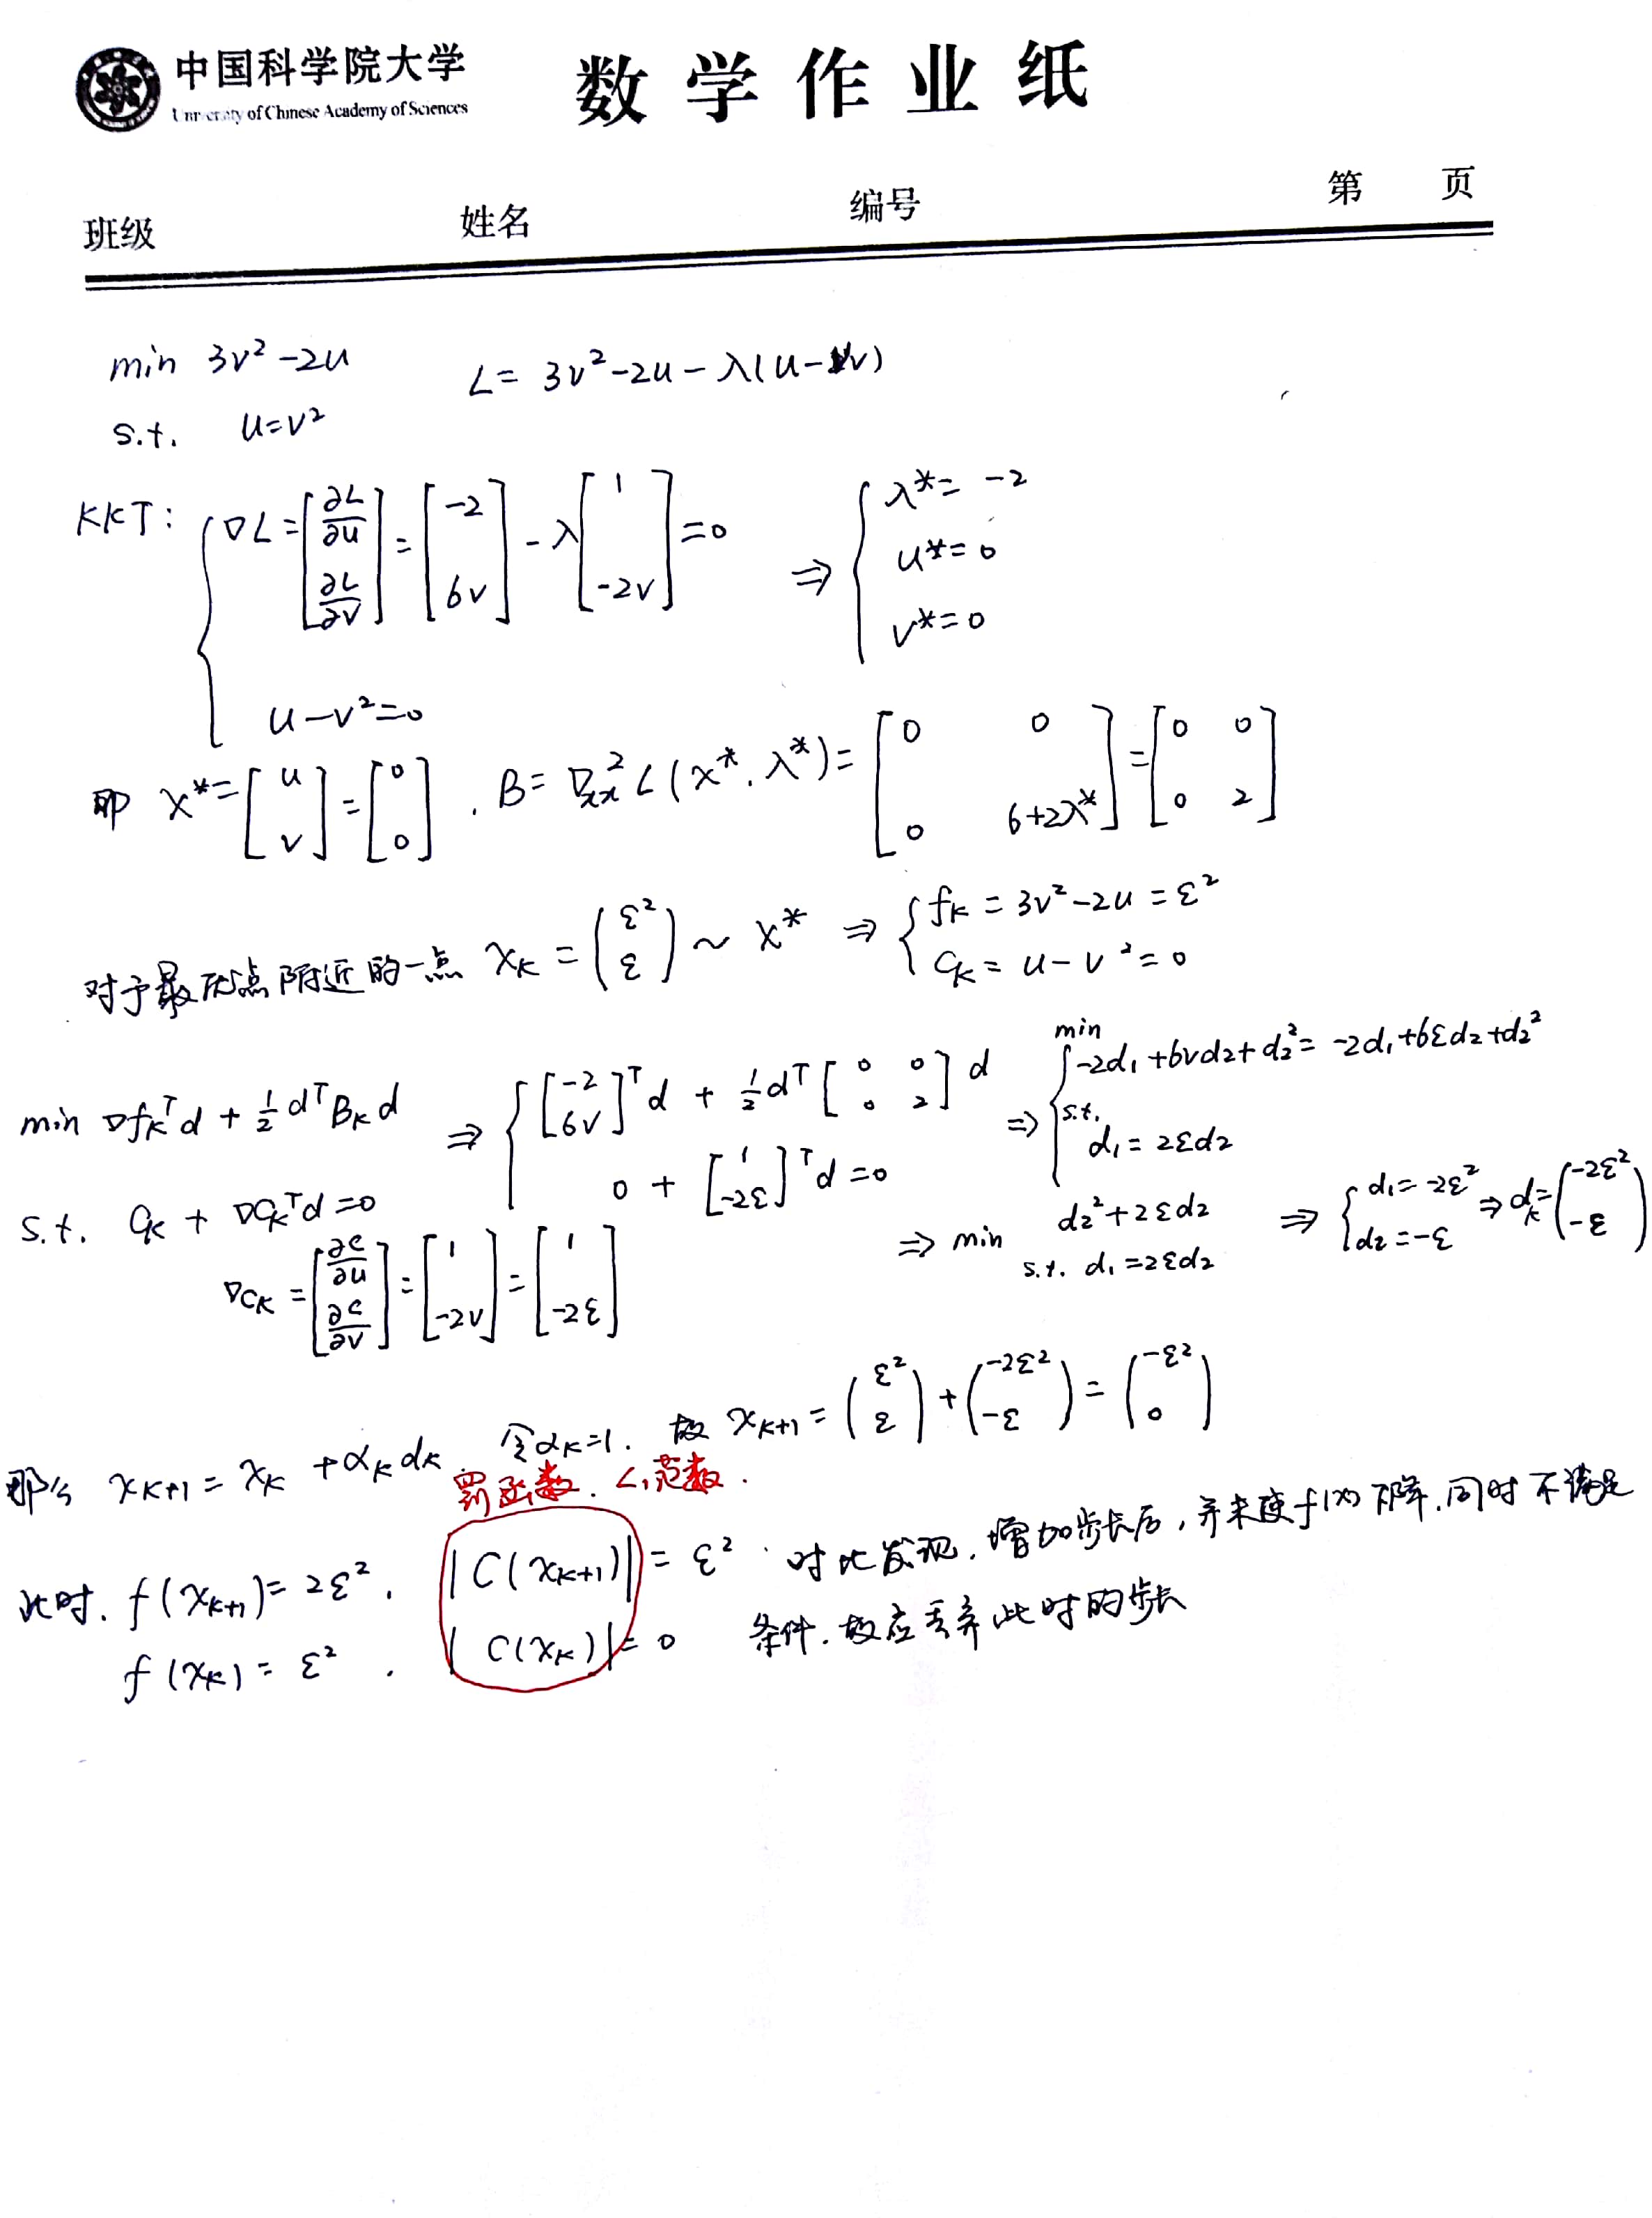 中国科学院大学
University of Chinese Academy of Sciences
数学作业纸
班级 姓名 编号 第 页
min 3v² -2u L = 3v² -2u - λ(u-v)
s.t. u=v²
KKT: { ∇L = [∂L/∂u ; ∂L/∂v] = [-2 ; 6v] - λ[1 ; -2v] = 0 ⇒ { λ* = -2 ; u* = 0 ; v* = 0
u - v² = 0
即 x* = [u ; v] = [0 ; 0] . B = ∇²xx L(x*, λ*) = [0 0 ; 0 6+2λ*] = [0 0 ; 0 2]
对于最优点附近的一点 xK = (ε² ; ε) ~ x* ⇒ { fK = 3v² -2u = ε² ; CK = u - v² = 0
min ∇fKᵀd + ½dᵀBKd ⇒ { [-2 ; 6v]ᵀd + ½dᵀ[0 0 ; 0 2]d ⇒ min { -2d₁+6vd₂+d₂² = -2d₁+6εd₂+d₂²
s.t. CK + ∇CKᵀd = 0 0 + [1 ; -2ε]ᵀd = 0 s.t. d₁ = 2εd₂
∇CK = [∂c/∂u ; ∂c/∂v] = [1 ; -2v] = [1 ; -2ε] ⇒ min d₂²+2εd₂ s.t. d₁=2εd₂ ⇒ { d₁ = -2ε² ; d₂ = -ε ⇒ dK = (-2ε² ; -ε)
那么 xK+1 = xK + αK dK 令αK=1. 故 xK+1 = (ε² ; ε) + (-2ε² ; -ε) = (-ε² ; 0)
罚函数. L₁范数.
此时. f(xK+1) = 2ε². |C(xK+1)| = ε² . 对比发现, 增加步长后, 并未使f(x)下降, 同时不满足
f(xK) = ε² . |C(xK)| = 0 条件. 故应丢弃此时的步长